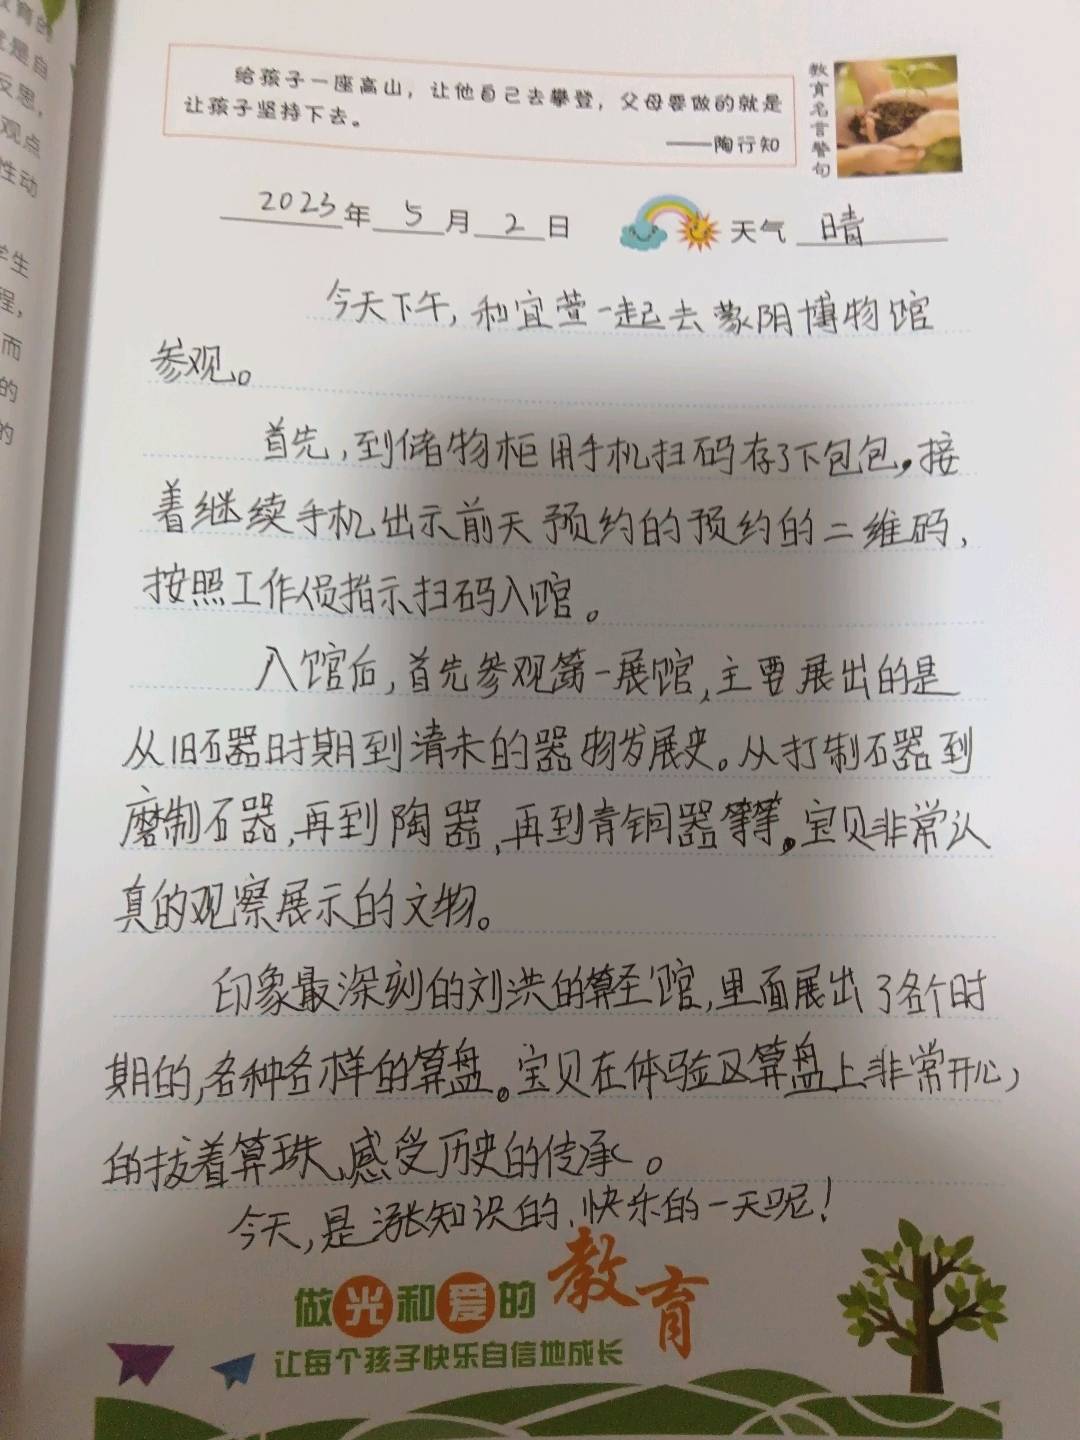 教育的
觉是自
反思,
观点
性动
学生
程,
而
的
的
给孩子一座高山，让他自己去攀登，父母要做的就是
让孩子坚持下去。
——陶行知
教育名言警句
2023年 5月 2日 天气 晴
今天下午,和宜萱一起去蒙阴博物馆
参观。
首先,到储物柜用手机扫码存了下包包,接
着继续手机出示前天预约的预约的二维码,
按照工作人员指示扫码入馆。
入馆后,首先参观第一展馆,主要展出的是
从旧石器时期到清末的器物发展史。从打制石器到
磨制石器,再到陶器,再到青铜器等等。宝贝非常认
真的观察展示的文物。
印象最深刻的刘洪的算圣馆,里面展出了各个时
期的,各种各样的算盘。宝贝在体验区算盘上非常开心,
的拔着算珠、感受历史的传承。
今天,是涨知识的、快乐的一天呢!
做光和爱的教育
让每个孩子快乐自信地成长